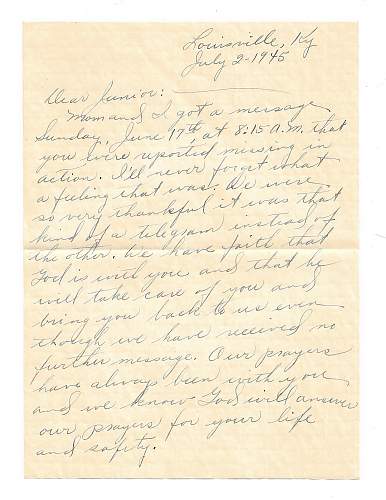 Louisville, Ky
July 2-1945
Dear Junior:
Mom and I got a message
Sunday, June 17th, at 8:15 A.M. that
you were reported missing in
action. I'll never forget what
a feeling that was. We were
so very thankful it was that
kind of a telegram instead of
the other. We have faith that
God is with you and that he
will take care of you and
bring you back to us even
though we have received no
further message. Our prayers
have always been with you
and we know God will answer
our prayers for your life
and safety.